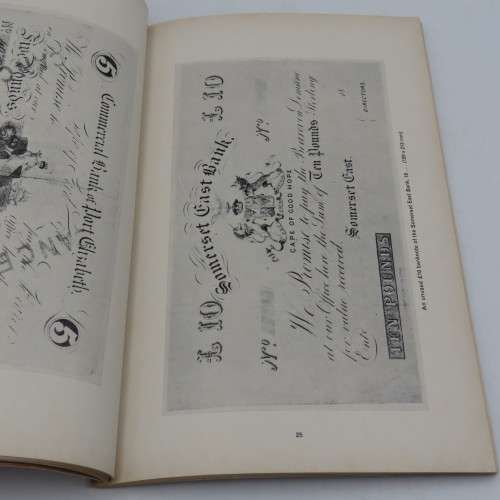 5 Commercial Bank of Port Elizabeth 5
Five Pounds
We Promise to
£10 Somerset East Bank £10
CAPE OF GOOD HOPE
No. No.
We Promise to pay the Bearer on Demand
at our Office here the Sum of Ten Pounds Sterling
for value received. Somerset East.
18
Entd.
DIRECTORS.
TEN POUNDS
An unused £10 banknote of the Somerset East Bank, 18
25